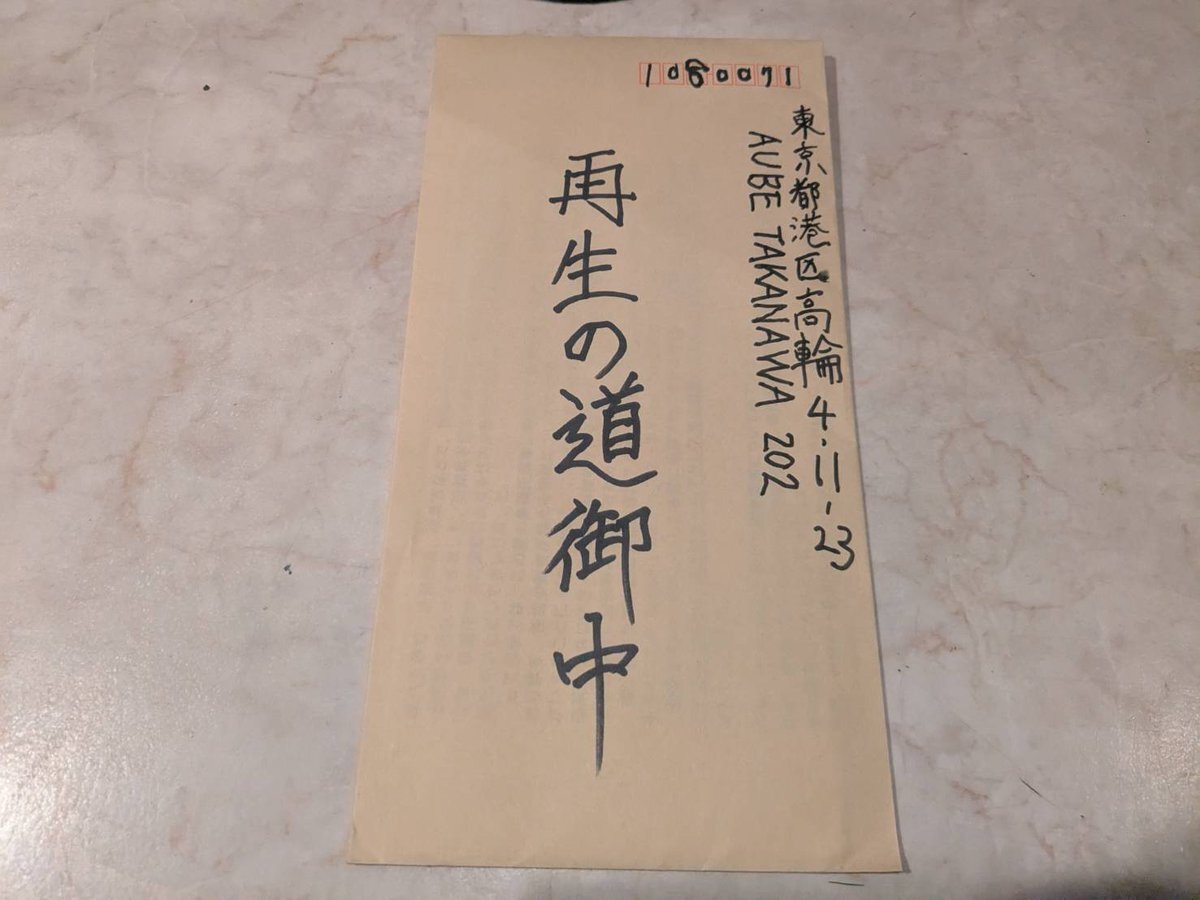 1080071
東京都港区高輪4-11-23
AUBE TAKANAWA 202
再生の道御中